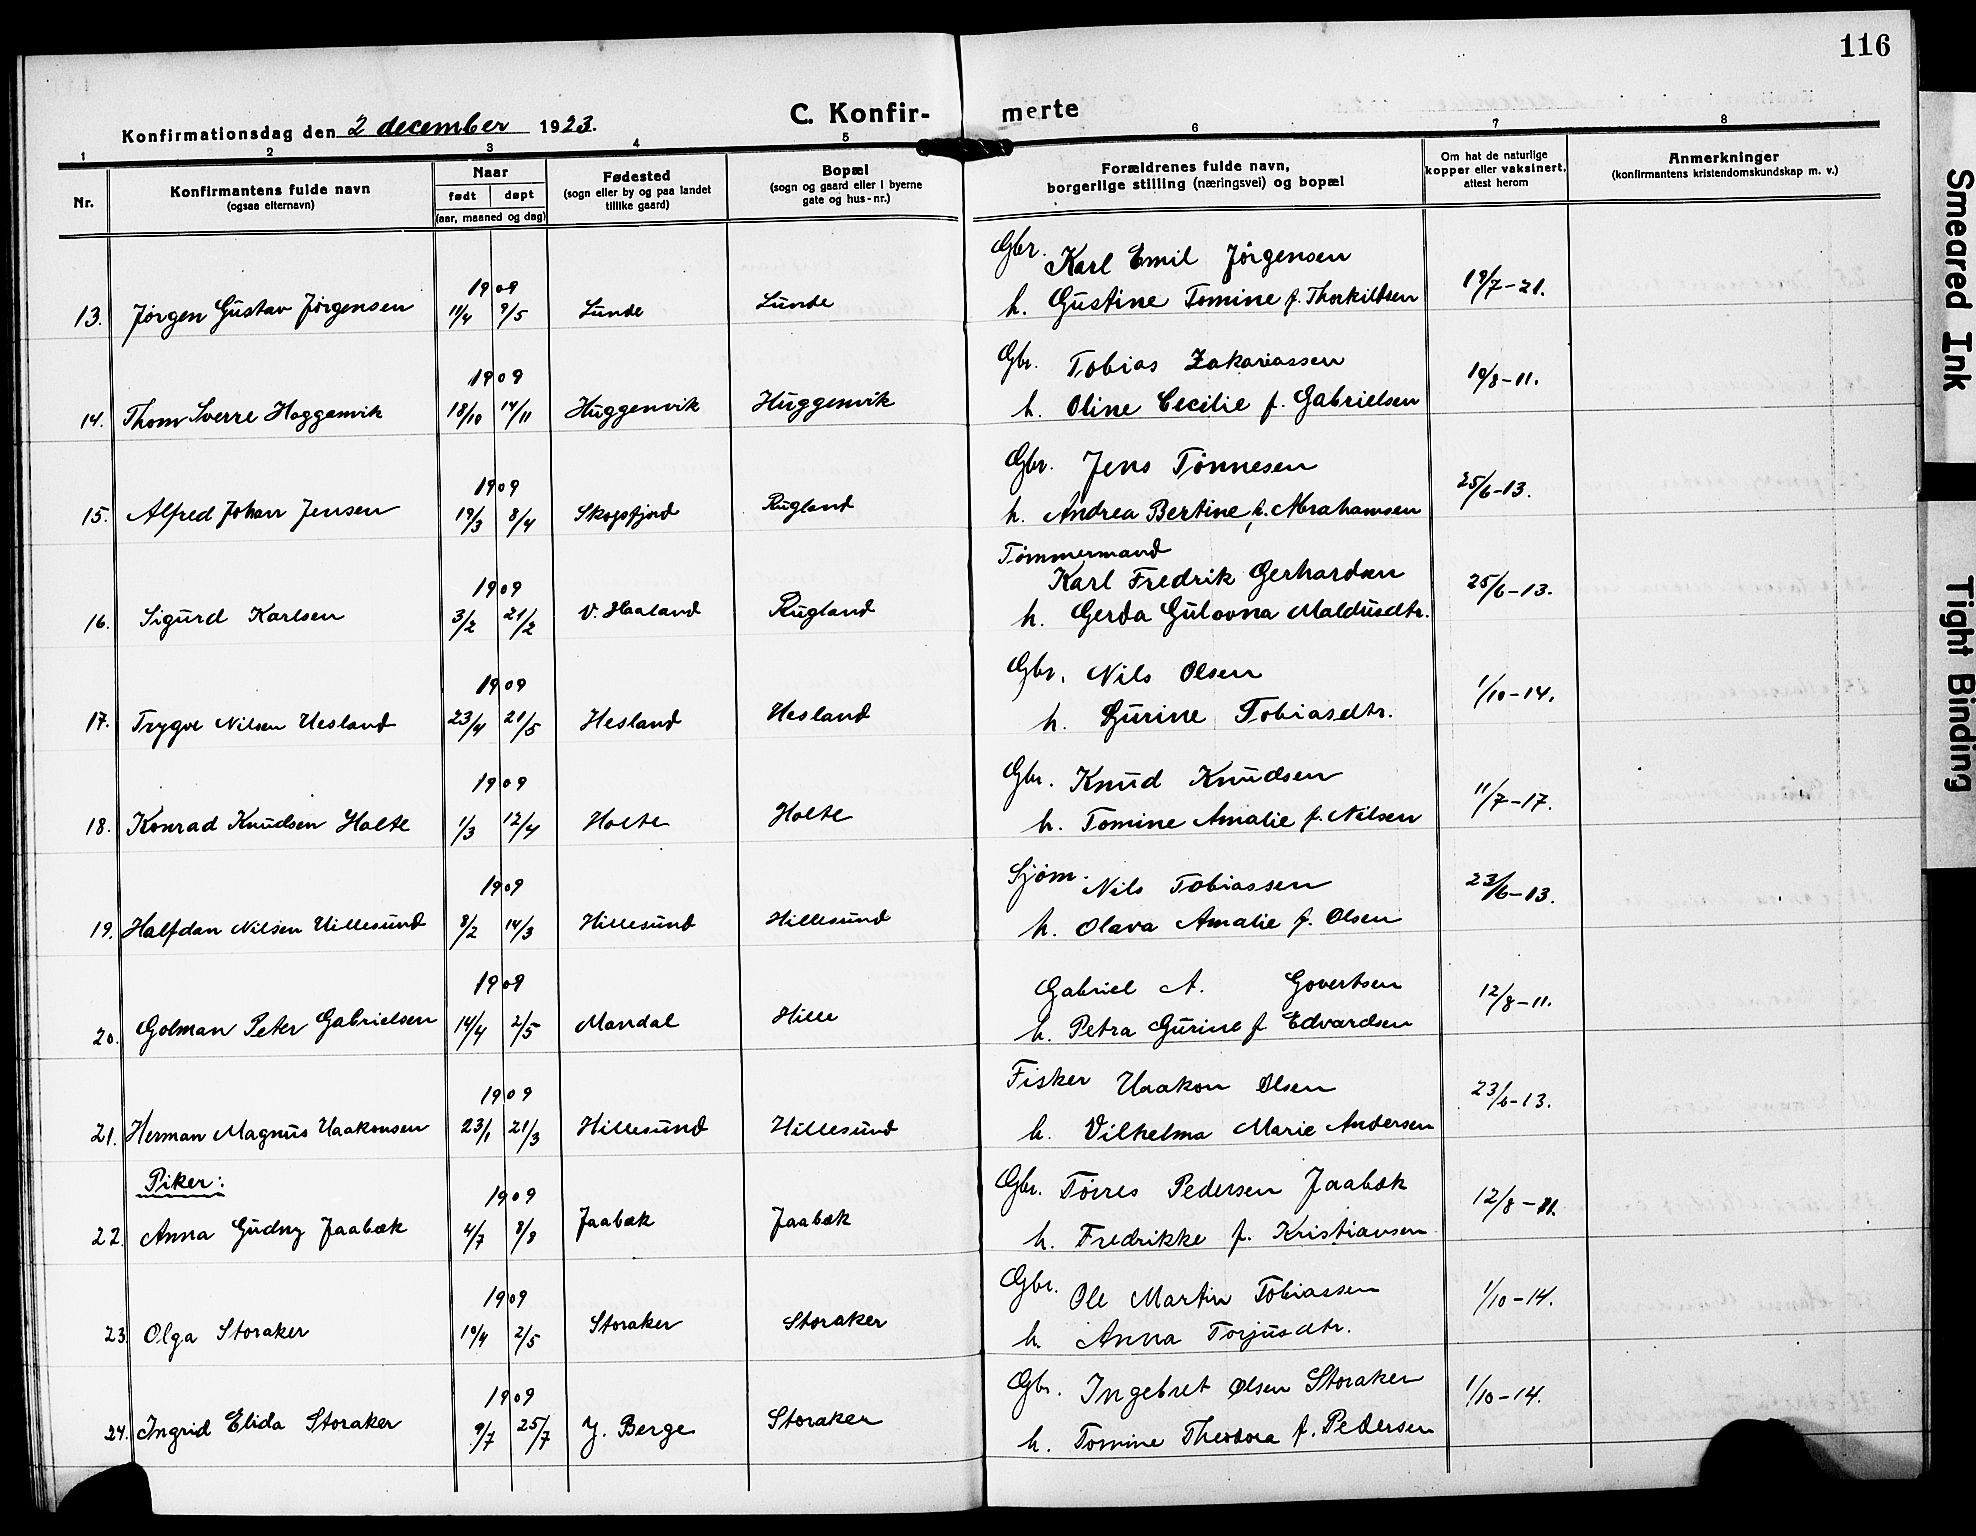 116
Konfirmationsdag den 2 december 1923.
C. Konfir-
merte
1 2 3 4 5 6 7 8
Nr.
Konfirmantens fulde navn
(ogsaa efternavn)
Naar
født døpt
(aar, maaned og dag)
Fødested
(sogn eller by og paa landet
tillike gaard)
Bopæl
(sogn og gaard eller i byerne
gate og hus-nr.)
Forældrenes fulde navn,
borgerlige stilling (næringsvei) og bopæl
Om hat de naturlige
kopper eller vaksinert.
attest herom
Anmerkninger
(konfirmantens kristendomskundskap m. v.)
1909 Gbr. Karl Emil Jörgensen
13. Jörgen Gustav Jörgensen 11/4 9/5 Lunde Lunde h. Gustine Tomine f. Thorkildsen 19/7-21.
1909 Gbr. Tobias Zakariassen
14. Thom Sverre Haggenvik 18/10 14/11 Huggenvik Huggenvik h. Oline Cecilie f. Gabrielsen 19/8-11.
1909 Gbr. Jens Tönnesen
15. Alfred Johan Jensen 19/3 8/4 Skogsfjord Rugland h. Andrea Bertine f. Abrahamsen 25/6-13.
Tømmermand
1909 Karl Fredrik Gerhardsen
16. Sigurd Karlsen 3/2 21/2 V. Haaland Rugland h. Gerda Gulovna Maldusdtr. 25/6-13.
1909 Gbr. Nils Olsen
17. Trygve Nilsen Hesland 23/4 21/5 Hesland Hesland h. Gurine Tobiasdtr. 1/10-14.
1909 Gbr. Knud Knudsen
18. Konrad Knudsen Holte 1/3 12/4 Holte Holte h. Tomine Amalie f. Nilsen 11/7-17.
1909 Sjøm. Nils Tobiassen
19. Halfdan Nilsen Hillesund 8/2 14/3 Hillesund Hillesund h. Olava Amalie f. Olsen 23/6-13.
1909 Gabriel A. Govertsen
20. Golman Peter Gabrielsen 14/4 2/5 Mandal Hille h. Petra Gurine f Edvardsen 12/8-11.
1909 Fisker Haakon Olsen
21. Herman Magnus Haakonsen 23/1 21/3 Hillesund Hillesund h. Vilhelma Marie Andersen 23/6-13.
Piker:
1909 Gbr. Törres Pedersen Jaabæk
22. Anna Gudny Jaabæk 4/7 8/8 Jaabæk Jaabæk h. Fredrikke f. Kristiansen 12/8-11.
1909 Gbr. Ole Martin Tobiassen
23 Olga Storaker 19/4 2/5 Storaker Storaker h. Anna Torjusdtr. 1/10-14.
1909 Gbr. Ingebret Olsen Storaker
24. Ingrid Elida Storaker 9/7 25/7 Y. Berge Storaker h. Tomine Theodora f. Pedersen 1/10-14.
Smeared Ink
Tight Binding